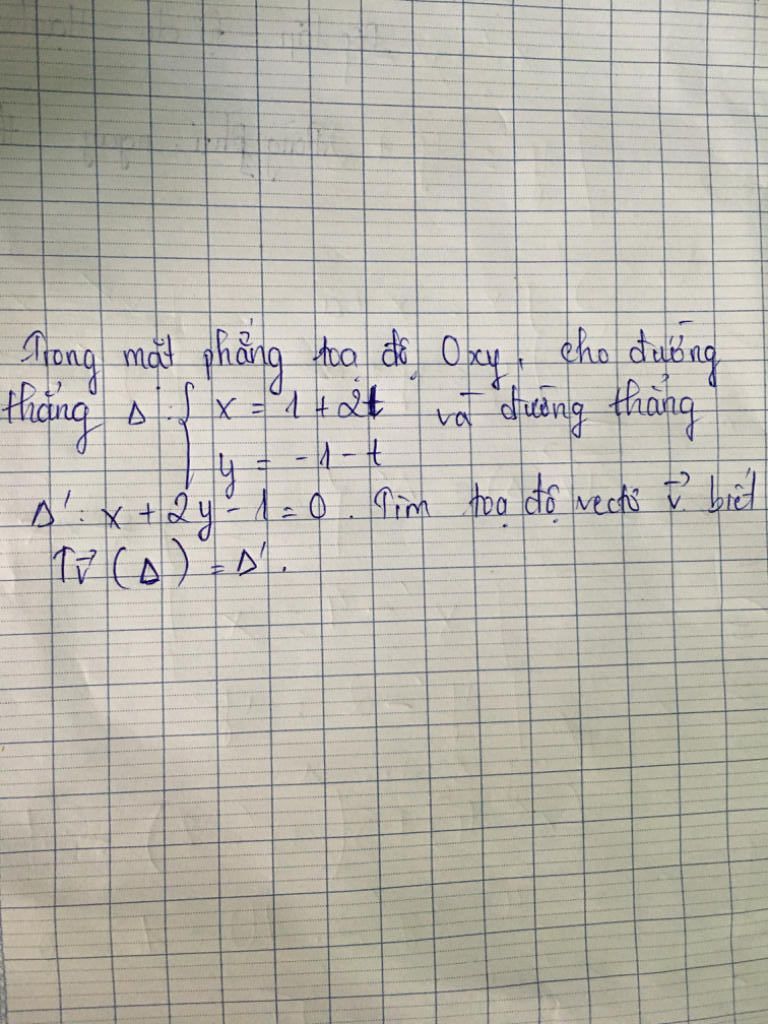 Trong mặt phẳng toạ độ Oxy, cho đường
thẳng Δ : { x = 1 + 2t và đường thẳng
y = -1 - t
Δ' : x + 2y - 1 = 0. Tìm toạ độ vectơ v⃗ biết
Tv⃗ (Δ) = Δ'.